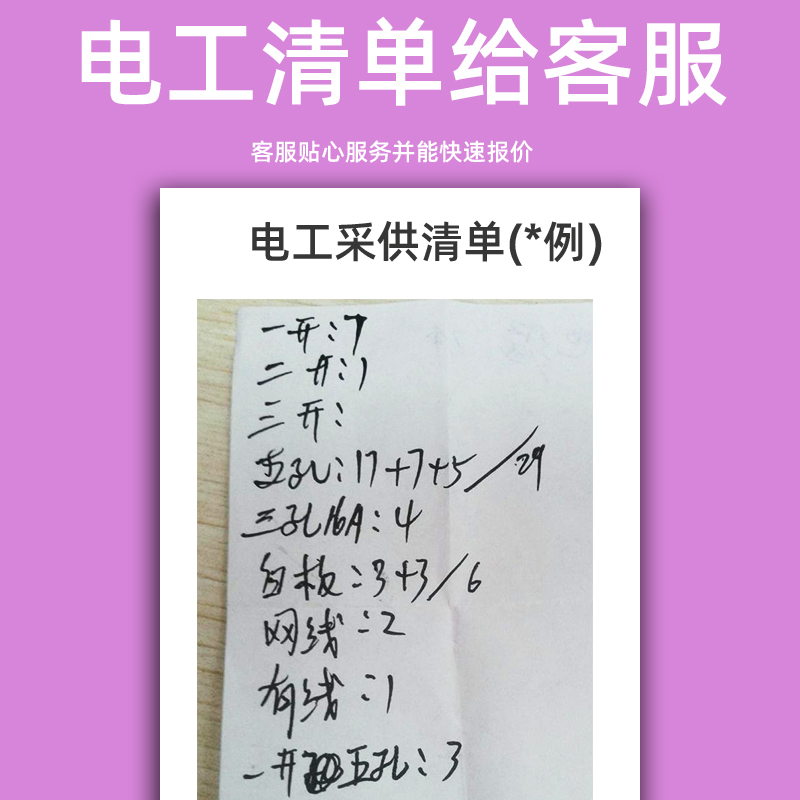 电工清单给客服
客服贴心服务并能快速报价
电工采供清单(*例)
一开:7
二开:1
三开:
五孔:17+7+5/29
三孔16A:4
白板:3+3/6
网线:2
有线:1
一开五孔:3